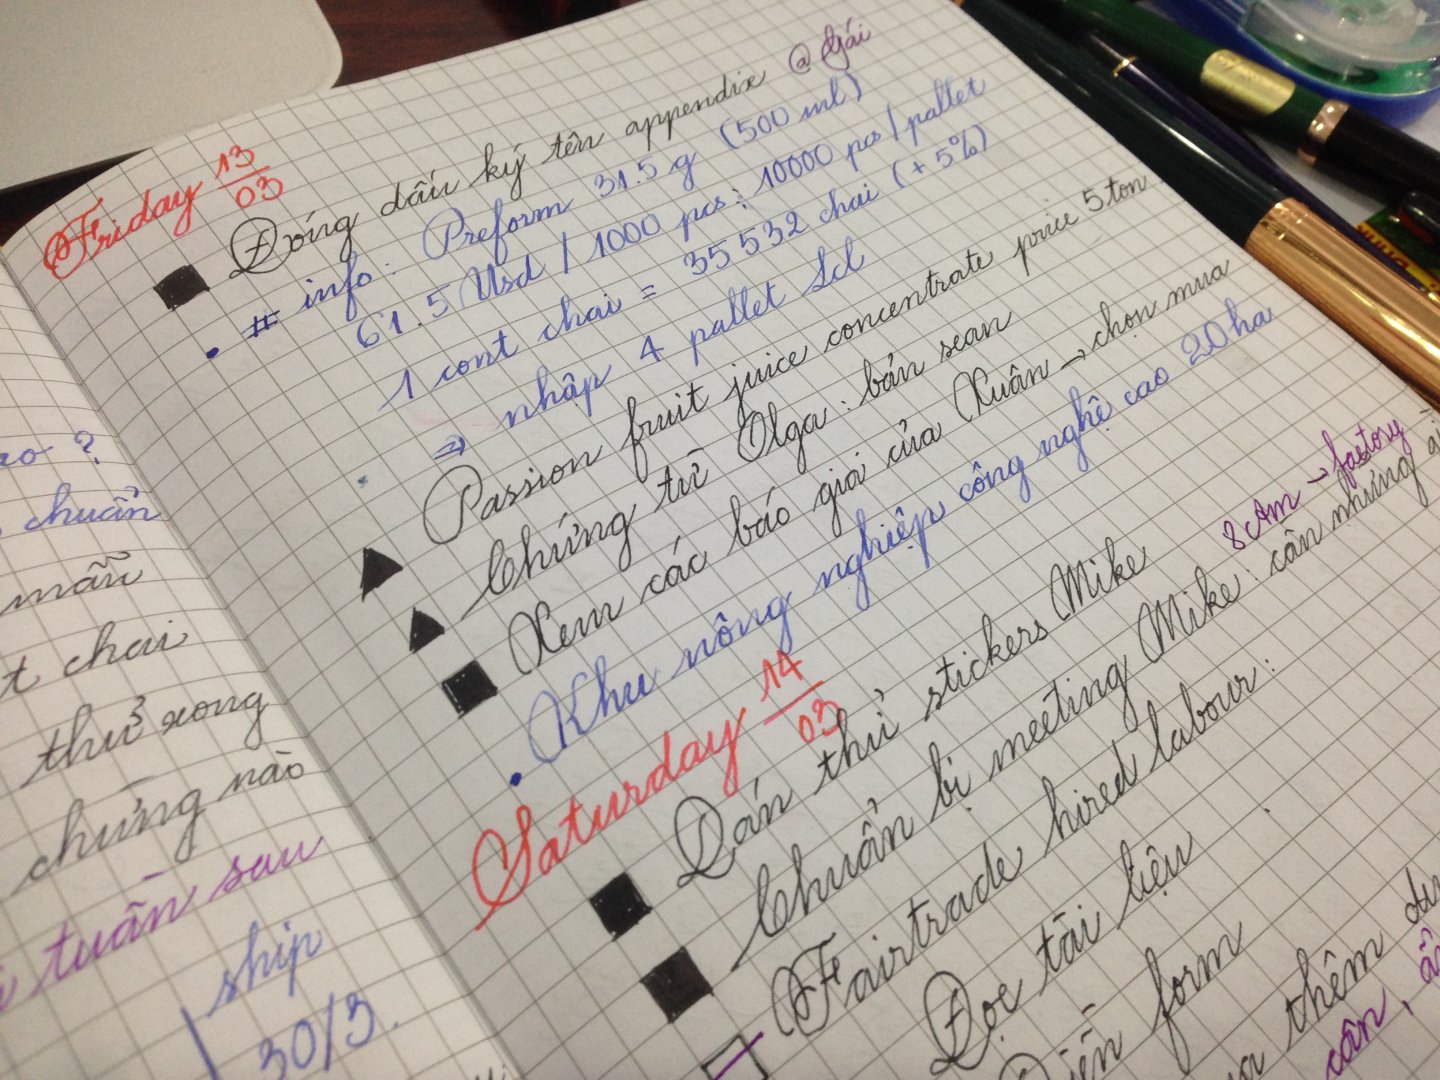 chuẩn
mẫu
t chai
thử xong
chứng nào
tuần sau
ship
30/3.
Friday 13/03
Đóng dấu ký tên appendix @ Gái
# info: Preform 31.5 g (500 ml)
61.5 Usd / 1000 pcs; 10000 pcs / pallet
1 cont chai = 35532 chai (+ 5%)
⇒ nhập 4 pallet Lcl
Passion fruit juice concentrate price 5 ton
Chứng từ Olga: bản scan
Xem các báo giá của Xuân → chọn mua
Khu nông nghiệp công nghệ cao 20 ha
Saturday 14/03
Dán thử stickers Mike
8 Am → factory
Chuẩn bị meeting Mike: cần những
Fairtrade hired labour:
Đọc tài liệu
form
thêm
cần,